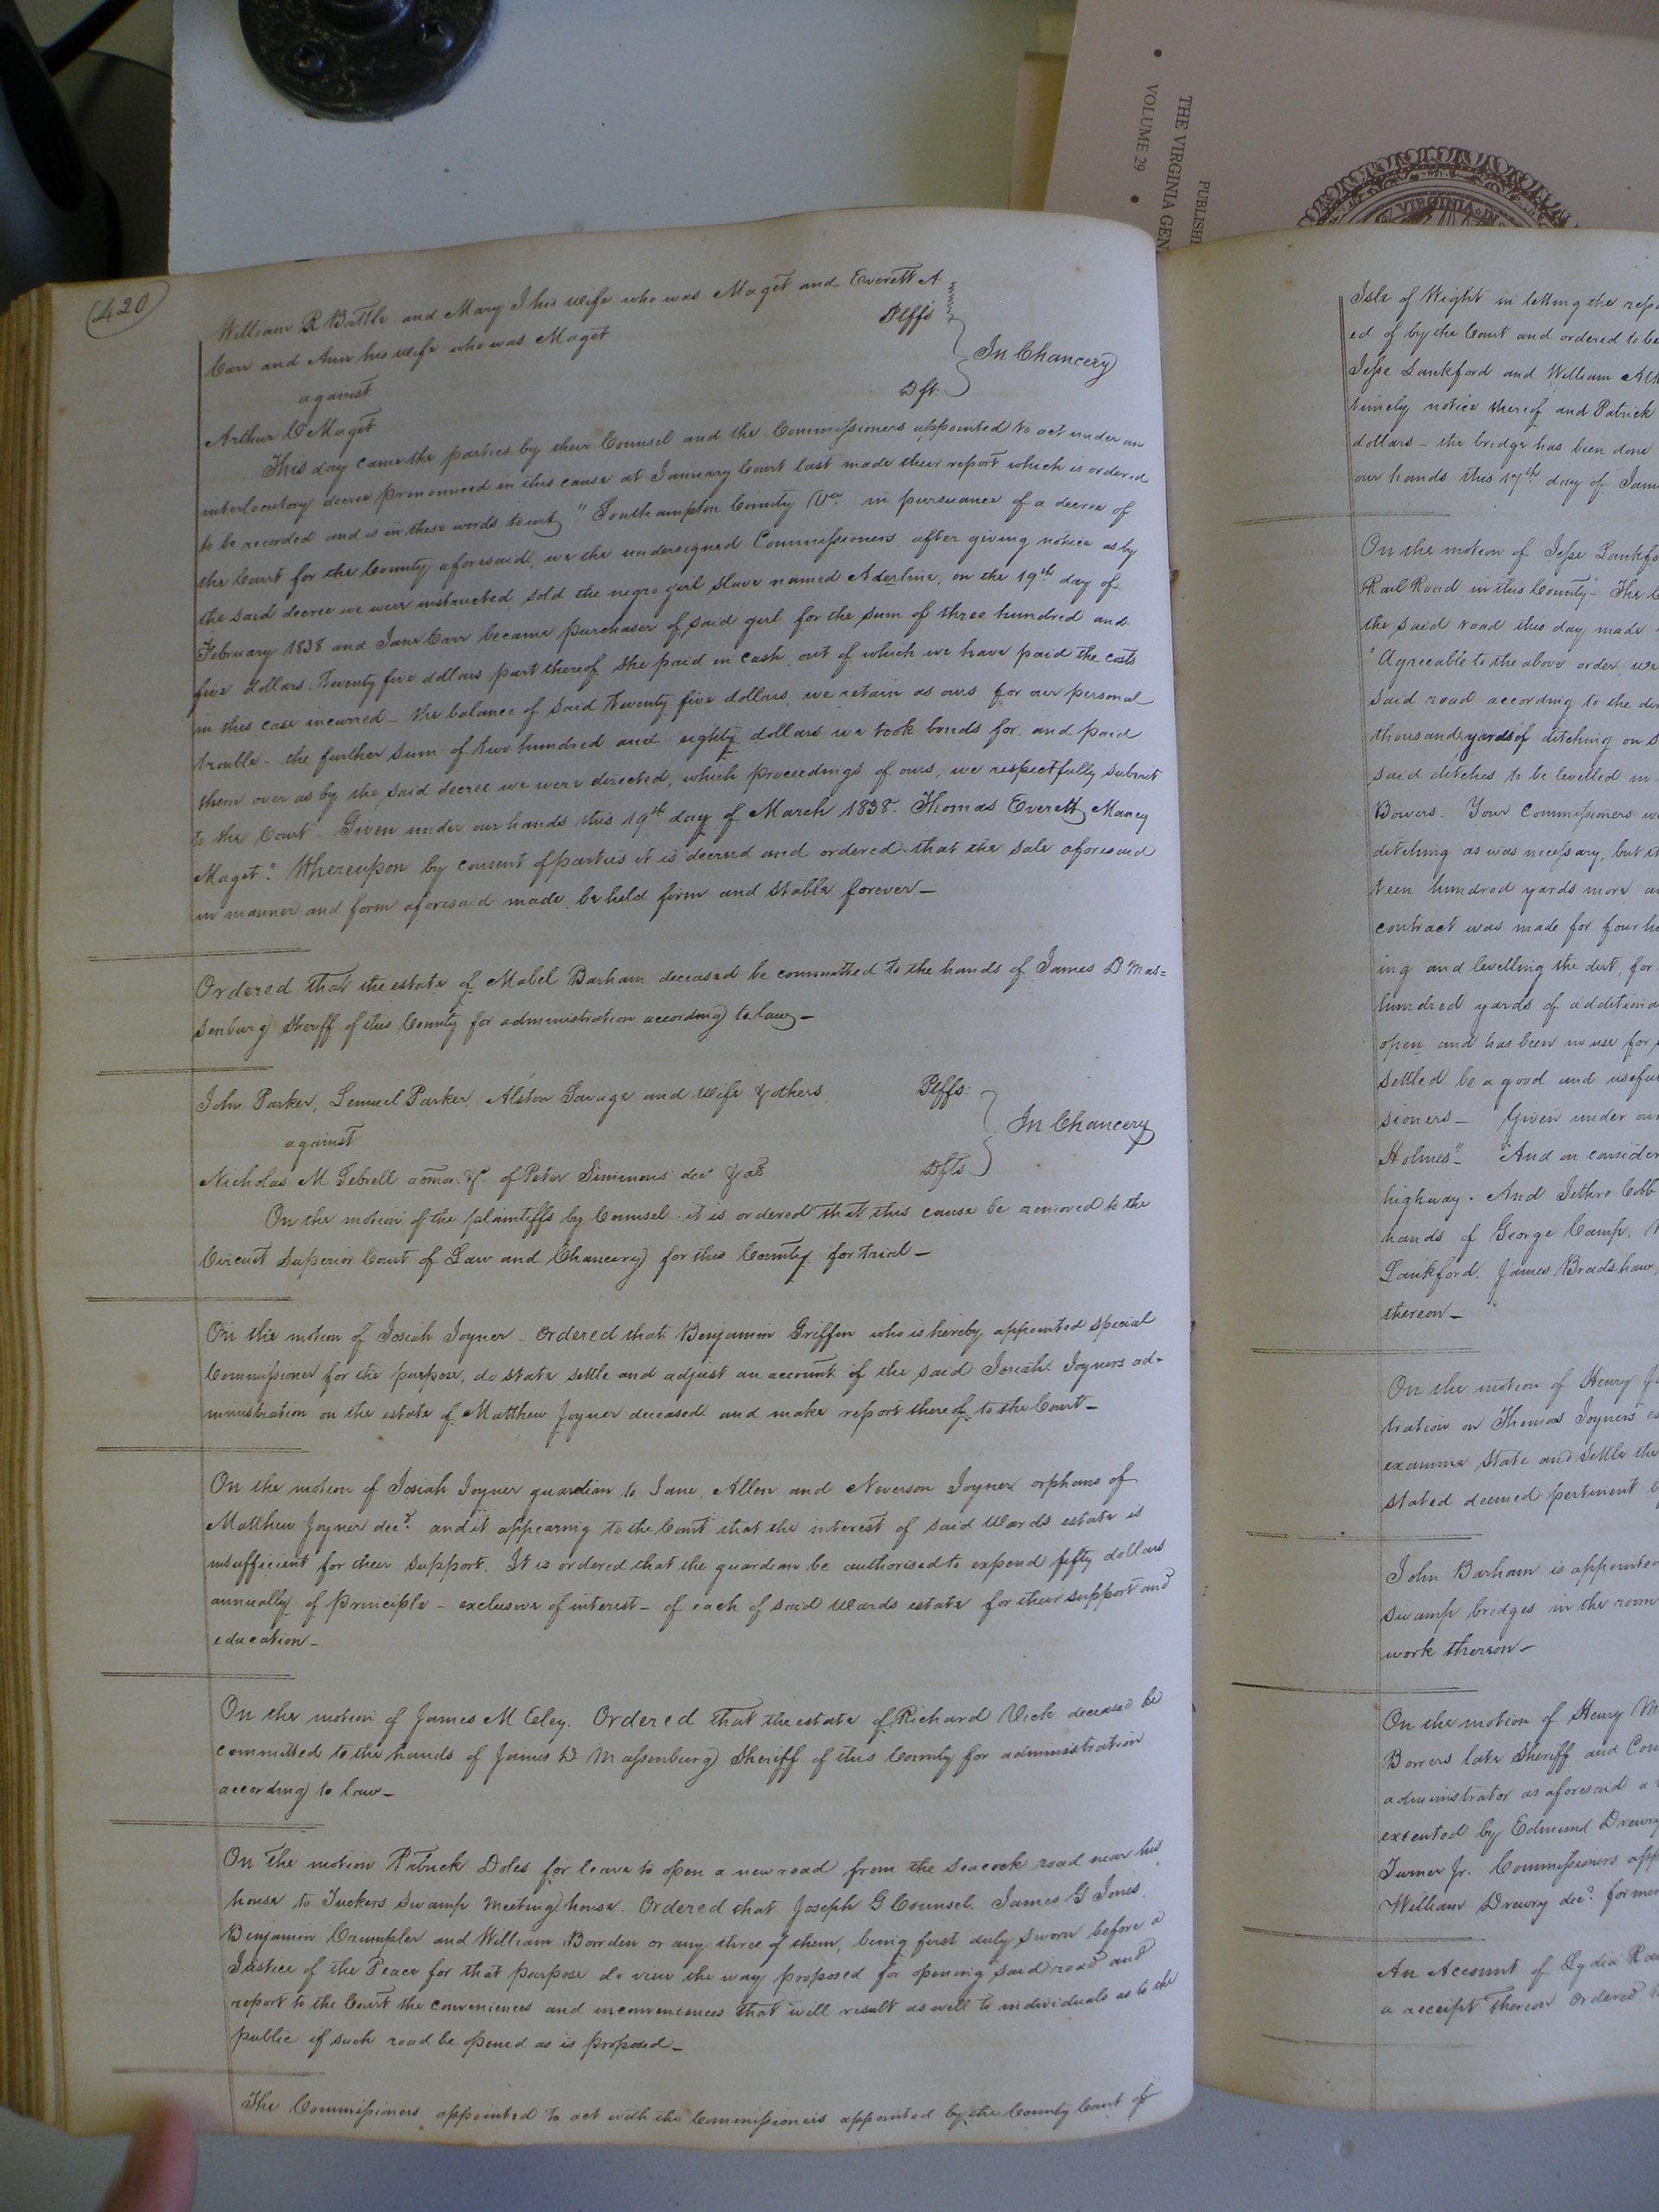 THE VIRGINIA GEN
VOLUME 29
PUBLISH
VIRGINIA
420
William R Battle and Mary J his wife who was Maget and Everett A
Carr and Ann his wife who was Maget Plffs
against In Chancery
Arthur Maget Dft.
This day came the parties by their Counsel and the Commissioners appointed to act under an
interlocutory decree pronounced in this cause at January Court last made their report which is ordered
to be recorded and is in these words to wit, "Southampton County Va. in pursuance of a decree of
the Court for the County aforesaid, we the undersigned Commissioners after giving notice as by
the said decree we were instructed, sold the negro girl slave named Aderline, on the 19th day of
February 1838 and Jane Carr became purchaser of said girl for the sum of three hundred and
five dollars. Twenty five dollars part thereof she paid in cash, out of which we have paid the costs
in this case incurred - the balance of said twenty five dollars, we retain as ours for our personal
trouble - the further sum of two hundred and eighty dollars we took bonds for and paid
them over as by the said decree we were directed, which proceedings of ours, we respectfully submit
to the Court - Given under our hands this 19th day of March 1838. Thomas Everett, Maney
Maget." Whereupon by consent of parties it is decreed and ordered that the sale aforesaid
in manner and form aforesaid made, be held firm and stable forever -
Ordered that the estate of Mabel Barham deceased be committed to the hands of James D Mas=
senburg Sheriff of this County for administration according to law -
John Parker, Lemuel Parker, Alston Savage and wife & others Plffs:
against In Chancery
Nicholas M Sebrell admor. &c. of Peter Simmons dec. & als Dfts
On the motion of the plaintiffs by Counsel it is ordered that this cause be removed to the
Circuit Superior Court of Law and Chancery for this County for trial -
On the motion of Josiah Joyner - Ordered that Benjamin Griffin who is hereby appointed special
Commissioner for the purpose, do state settle and adjust an account of the said Josiah Joyners ad-
ministration on the estate of Matthew Joyner deceased and make report thereof to the Court -
On the motion of Josiah Joyner guardian to Jane, Allen and Neverson Joyner orphans of
Matthew Joyner decd. and it appearing to the Court that the interest of said Wards estate is
insufficient for their support. It is ordered that the guardian be authorised to expend fifty dollars
annually of principle - exclusive of interest - of each of said Wards estate for their support and
education -
On the motion of James M Eley. Ordered that the estate of Richard Vick deceased be
committed to the hands of James D Massenburg Sheriff of this County for administration
according to law -
On the motion Patrick Doles for leave to open a new road from the Seacock road near his
house to Tuckers Swamp Meeting house. Ordered that Joseph G Counsel, James G Jones,
Benjamin Crumpler and William Bowden or any three of them, being first duly sworn before a
Justice of the Peace for that purpose do view the way proposed for opening said road and
report to the Court the conveniences and inconveniences that will result as well to individuals as to the
public if such road be opened as is proposed -
The Commissioners appointed to act with the Commissioners appointed by the County Court of
Isle of Wight in letting the
ed of by the Court and ordered to be
Jesse Lankford and William
timely notice thereof and Patrick
dollars - the bridge has been done
our hands this 17th day of
On the motion of Jesse
Rail Road in this County - The
the said road this day made
"Agreeable to the above order we
said road according to the
thousand yards of ditching on
said ditches to be levelled in
Bowers. Your Commissioners
ditching as was necessary, but
teen hundred yards more
contract was made for four
ing and levelling the dirt, for
hundred yards of
open and has been in use for
settled be a good and
sioners - Given under
Holmes" - And on
highway. And Jethro Cobb
hands of George Camp,
Lankford, James Bradshaw,
thereon -
On the motion of Henry
tration on Thomas Joyners
examine state and settle the
stated deemed pertinent
John Barham is appointed
swamp bridges in the room
work thereon -
On the motion of Henry
late Sheriff and
administrator as aforesaid a
executed by Edmund Drewry
Turner Jr. Commissioners
William Drewry decd.
An Account of Lydia
a receipt thereon Ordered